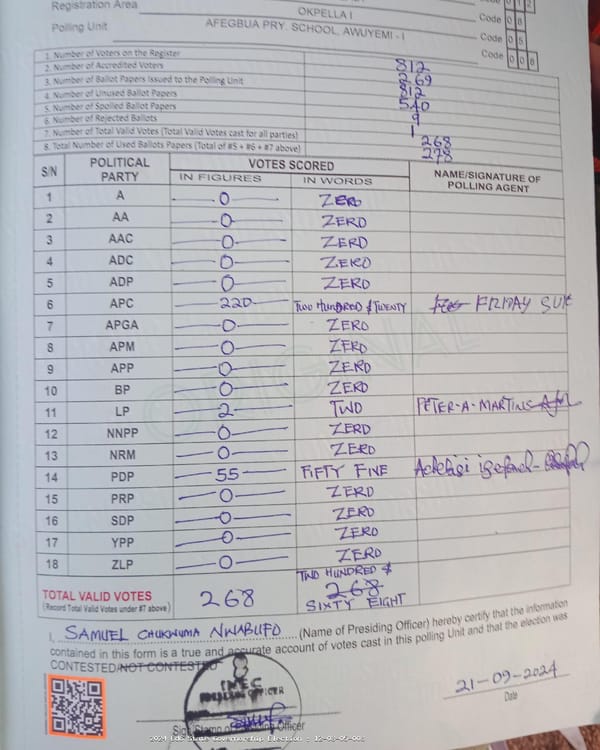 Registration Area OKPELLA I Code 0 8
Polling Unit AFEGBUA PRY. SCHOOL, AWUYEMI - I Code 0 5
Code 0 0 8
1. Number of Voters on the Register 812
2. Number of Accredited Voters 269
3. Number of Ballot Papers Issued to the Polling Unit 812
4. Number of Unused Ballot Papers 540
5. Number of Spoiled Ballot Papers 9
6. Number of Rejected Ballots 1
7. Number of Total Valid Votes (Total Valid Votes cast for all parties) 268
8. Total Number of Used Ballots Papers (Total of #5 + #6 + #7 above) 278
S/N POLITICAL PARTY VOTES SCORED NAME/SIGNATURE OF POLLING AGENT
IN FIGURES IN WORDS
1 A 0 ZERO
2 AA 0 ZERO
3 AAC 0 ZERO
4 ADC 0 ZERO
5 ADP 0 ZERO
6 APC 220 TWO HUNDRED & TWENTY FRIDAY SUK
7 APGA 0 ZERO
8 APM 0 ZERO
9 APP 0 ZERO
10 BP 0 ZERO
11 LP 2 TWO PETER-A-MARTINS
12 NNPP 0 ZERO
13 NRM 0 ZERO
14 PDP 55 FIFTY FIVE
15 PRP 0 ZERO
16 SDP 0 ZERO
17 YPP 0 ZERO
18 ZLP 0 ZERO
TOTAL VALID VOTES 268 TWO HUNDRED &
(Record Total Valid Votes under #7 above) 268
SIXTY EIGHT
I, SAMUEL CHUKWUMA NWABUFO (Name of Presiding Officer) hereby certify that the information
contained in this form is a true and accurate account of votes cast in this polling Unit and that the election was
CONTESTED/NOT CONTESTED
INEC
21-09-2024
Date
Officer
2024 Edo State Governorship Election : 12-03-05-008
ORIGINAL